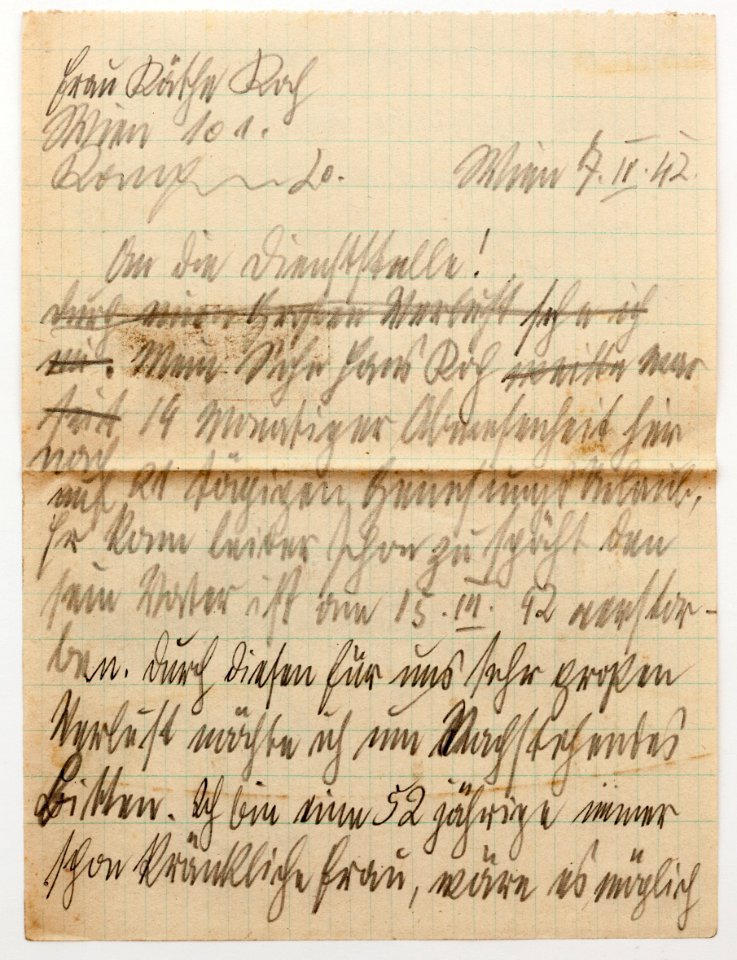 Frau Käthe Koch
Wien 101.
Wien 7. IV. 42.
An die Dienststelle!
durch einen großen Verlust sehe ich
mi. Mein Sohn Hans Koch weilte war
seit 14 Monatiger Abwesenheit hier
nach
auf 21 tägigen Genesungs Urlaub,
Er kam leider schon zu späht den
sein Vater ist am 15. III. 42 verstor-
ben. Durch diesen für uns sehr großen
Verlust möchte ich um Nachstehendes
Bitten. Ich bin eine 52 jährige immer
schon kränkliche Frau, wäre es möglich